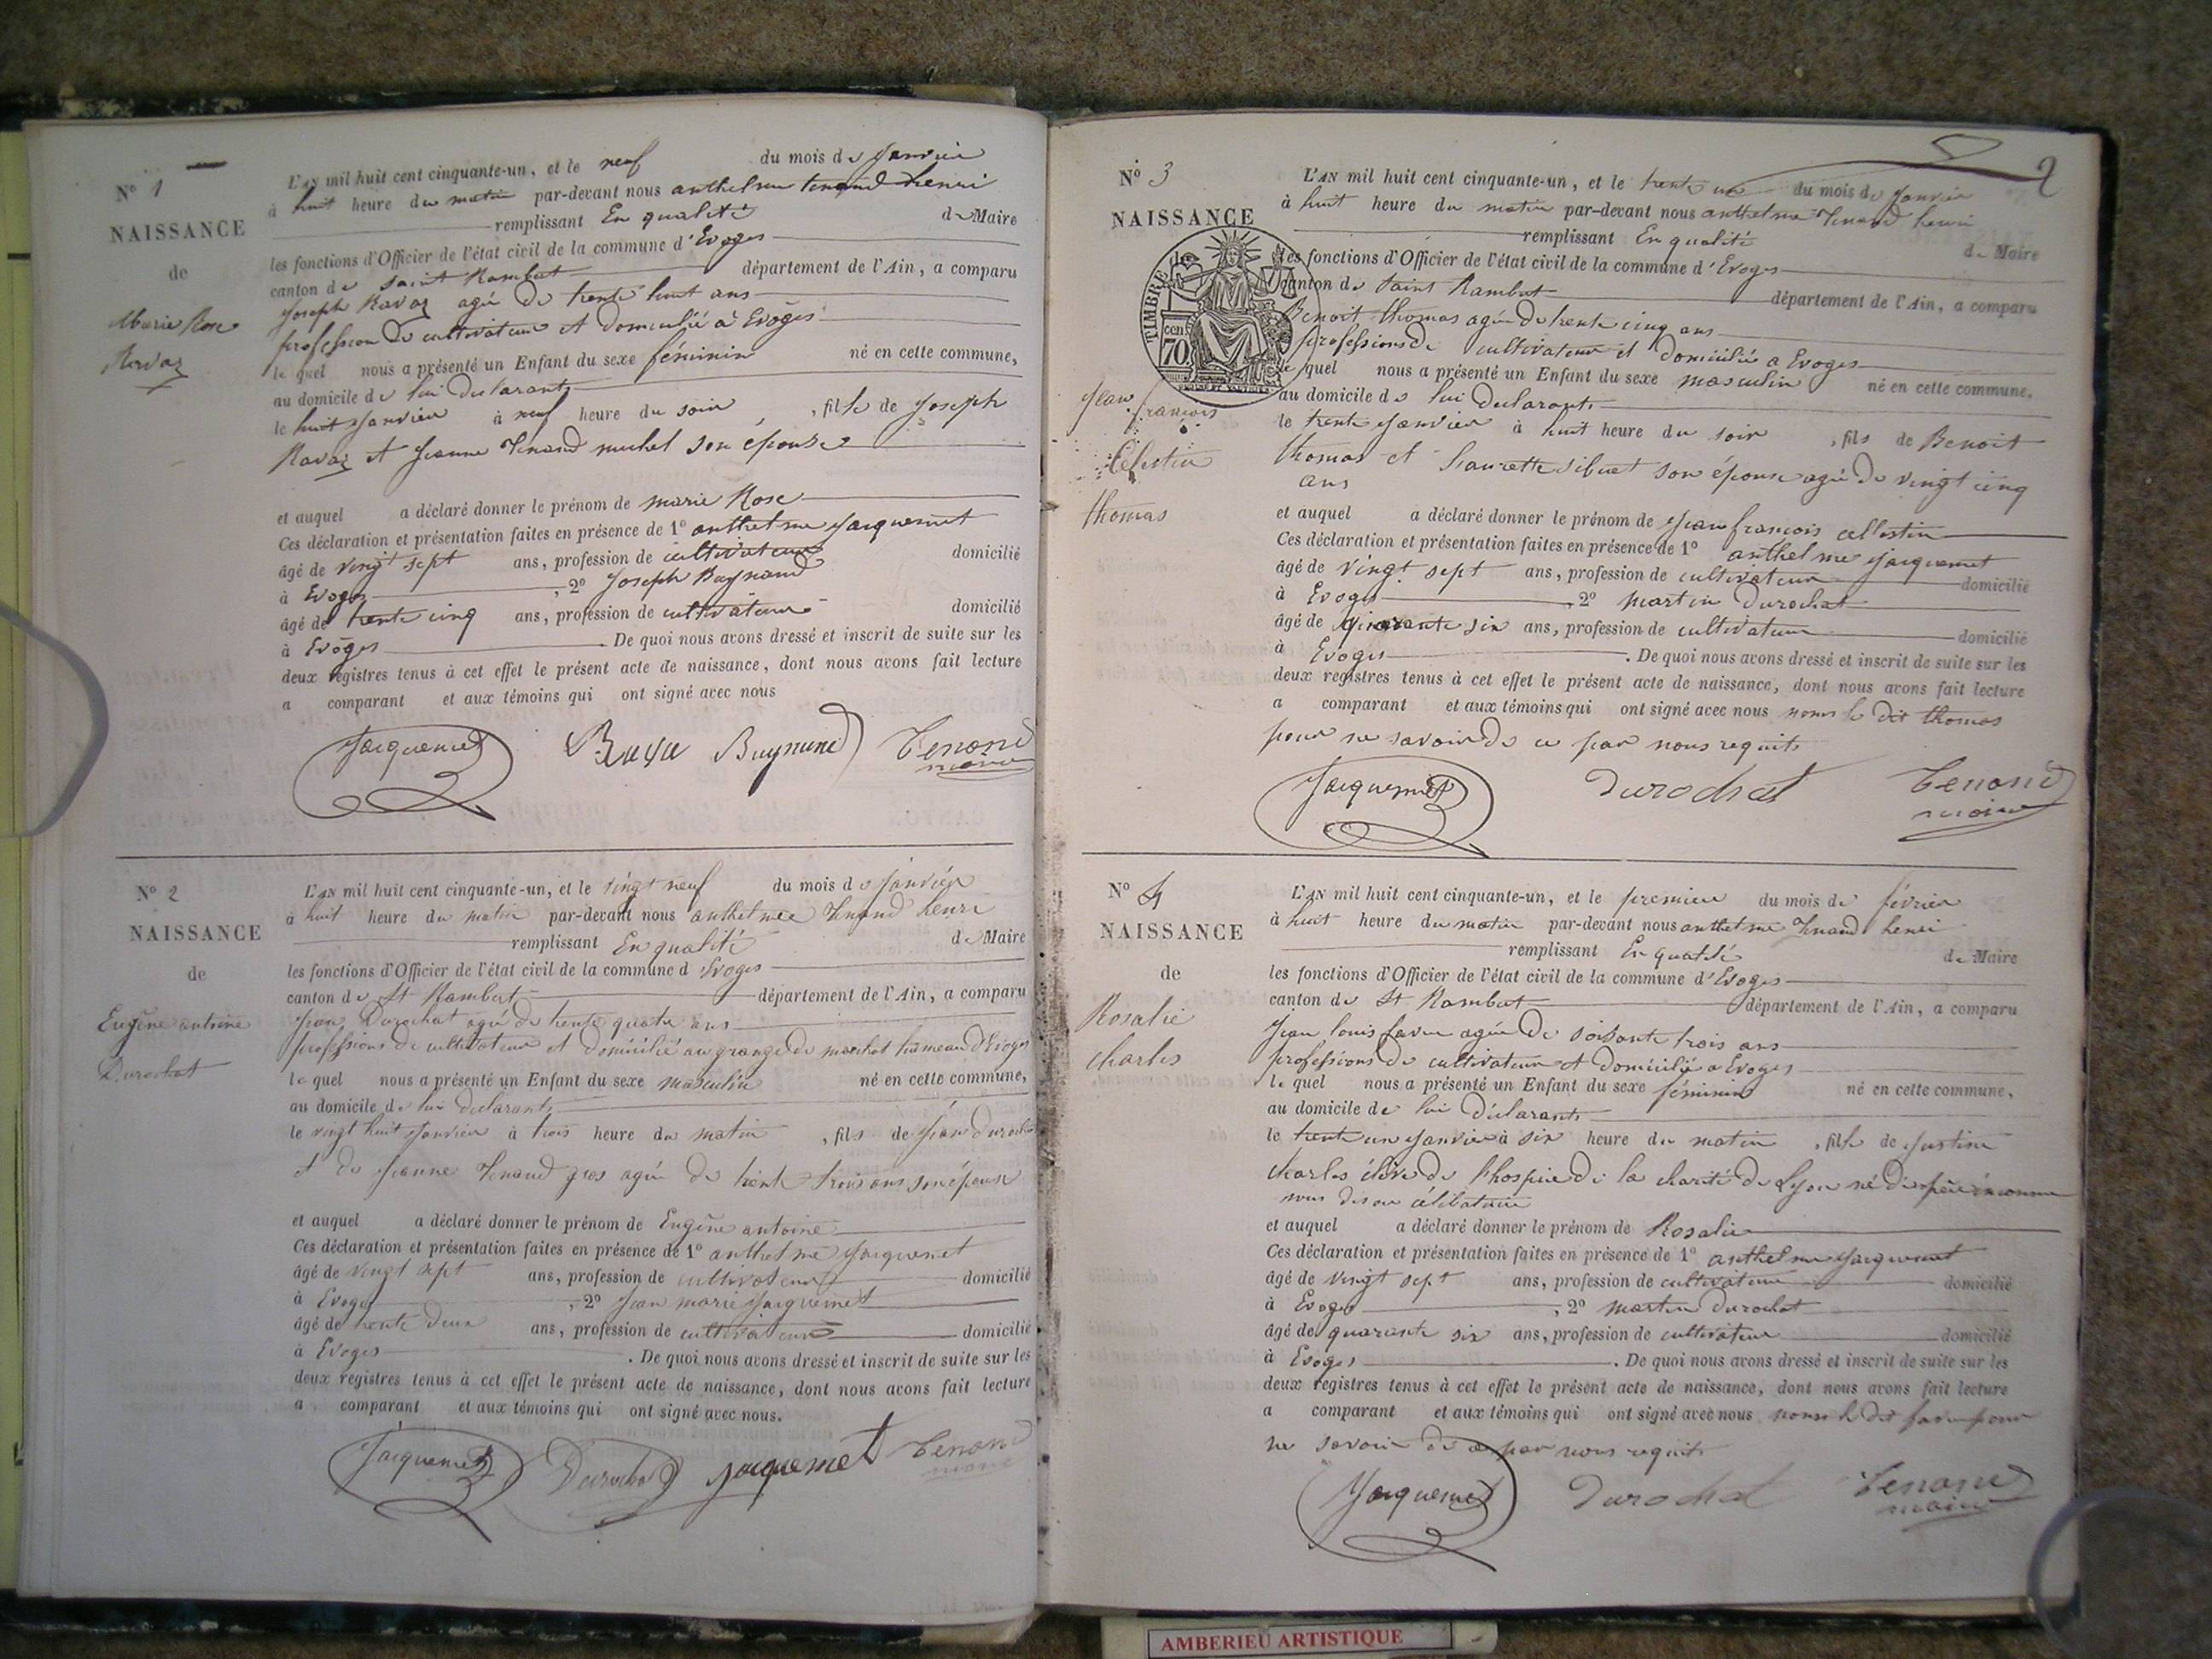 N° 1
NAISSANCE
de
Marie Rose
Ravaz
L'AN mil huit cent cinquante-un, et le neuf du mois de Janvier
à huit heure du matin par-devant nous anthelme tenand henri
remplissant En qualité de Maire
les fonctions d'Officier de l'état civil de la commune d'Evoges
canton de saint Rambert département de l'Ain, a comparu
Joseph Ravaz agé de trente huit ans
profession de cultivateur et domicilié à Evoges
le quel nous a présenté un Enfant du sexe féminin né en cette commune,
au domicile de lui declarant
le huit Janvier à neuf heure du soir, fille de Joseph
Ravaz et Jeanne Tenand michel son épouse
et auquel a déclaré donner le prénom de marie Rose
Ces déclaration et présentation faites en présence de 1° anthelme Jacquemet
âgé de vingt sept ans, profession de cultivateur domicilié
à Evoges, 2° Joseph Buynand
âgé de trente cinq ans, profession de cultivateur domicilié
à Evoges. De quoi nous avons dressé et inscrit de suite sur les
deux registres tenus à cet effet le présent acte de naissance, dont nous avons fait lecture
a comparant et aux témoins qui ont signé avec nous
Jacquemet Buynand Tenand
maire
N° 2
NAISSANCE
de
Eugène antoine
Durochat
L'AN mil huit cent cinquante-un, et le vingt neuf du mois de Janvier
à huit heure du matin par-devant nous anthelme Tenand henri
remplissant En qualité de Maire
les fonctions d'Officier de l'état civil de la commune d Evoges
canton de St Rambert département de l'Ain, a comparu
Jean Durochat agé de trente quatre ans
professions de cultivateur et domicilié au grange de marchat hameau d'Evoges
le quel nous a présenté un Enfant du sexe masculin né en cette commune,
au domicile de lui declarant
le vingt huit Janvier à trois heure du matin, fils de Jean Durochat
et de Jeanne Tenand gros agée de trente trois ans son épouse
et auquel a déclaré donner le prénom de Eugène antoine
Ces déclaration et présentation faites en présence de 1° anthelme Jacquemet
âgé de vingt sept ans, profession de cultivateur domicilié
à Evoges, 2° Jean marie Jacquemet
âgé de trente deux ans, profession de cultivateur domicilié
à Evoges. De quoi nous avons dressé et inscrit de suite sur les
deux registres tenus à cet effet le présent acte de naissance, dont nous avons fait lecture
a comparant et aux témoins qui ont signé avec nous.
Jacquemet Durochat Jacquemet Tenand
maire
2
N° 3
NAISSANCE
TIMBRE
70 cen
Jean
francois
Celestin
thomas
L'AN mil huit cent cinquante-un, et le trente un du mois de Janvier
à huit heure du matin par-devant nous anthelme Tenand henri
remplissant En qualité de Maire
les fonctions d'Officier de l'état civil de la commune d'Evoges
canton de Saint Rambert département de l'Ain, a comparu
Benoit thomas agé de trente cinq ans
professions de cultivateur et domicilié a Evoges
le quel nous a présenté un Enfant du sexe masculin né en cette commune.
au domicile de lui declarant
le trente Janvier à huit heure du soir, fils de Benoit
thomas et son épouse agée de vingt cinq
ans
et auquel a déclaré donner le prénom de Jean francois cellestin
Ces déclaration et présentation faites en présence de 1° anthelme Jacquemet
âgé de vingt sept ans, profession de cultivateur domicilié
à Evoges, 2° martin Durochat
âgé de quarante six ans, profession de cultivateur domicilié
à Evoges. De quoi nous avons dressé et inscrit de suite sur les
deux registres tenus à cet effet le présent acte de naissance, dont nous avons fait lecture
a comparant et aux témoins qui ont signé avec nous nons le dit thomas
pour ne savoir de ce par nous requit
Jacquemet Durochat Tenand
maire
N° 4
NAISSANCE
de
Rosalie
charles
L'AN mil huit cent cinquante-un, et le premier du mois de février
à huit heure du matin par-devant nous anthelme Tenand henri
remplissant En qualité de Maire
les fonctions d'Officier de l'état civil de la commune d'Evoges
canton de St Rambert département de l'Ain, a comparu
Jean louis favre agée de soisante trois ans
professions de cultivateur et domicilié a Evoges
le quel nous a présenté un Enfant du sexe féminin né en cette commune,
au domicile de lui déclarant
le trente un Janvier à six heure du matin, fille de Justine
charles élève de l'hospice de la charité de Lyon né de père inconnu
nous célibataire
et auquel a déclaré donner le prénom de Rosalie
Ces déclaration et présentation faites en présence de 1° anthelme Jacquemet
âgé de vingt sept ans, profession de cultivateur domicilié
à Evoges, 2° martin Durochat
âgé de quarante six ans, profession de cultivateur domicilié
à Evoges. De quoi nous avons dressé et inscrit de suite sur les
deux registres tenus à cet effet le présent acte de naissance, dont nous avons fait lecture
a comparant et aux témoins qui ont signé avec nous nons le dit favre pour
ne savoir de ce par nous requit
Jacquemet Durochat Tenand
maire
AMBERIEU ARTISTIQUE